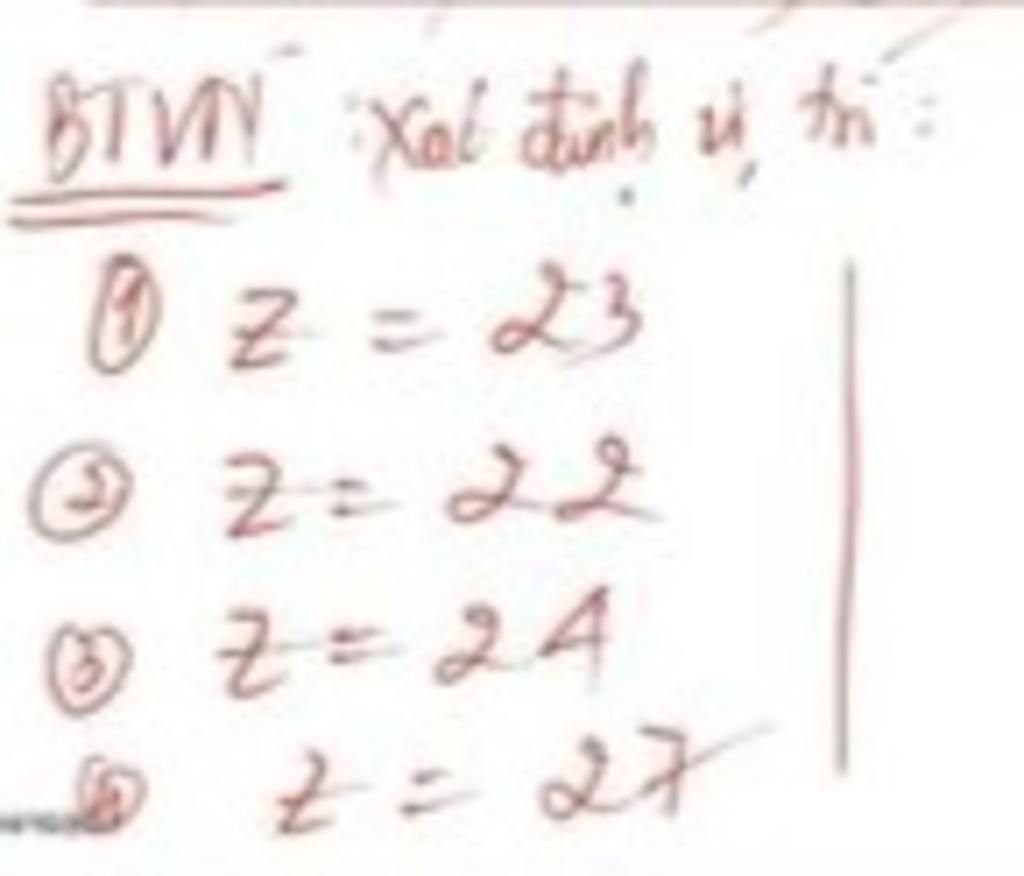 BTVN : Xác định vị trí :
① Z = 23
② Z = 22
③ Z = 24
④ Z = 27